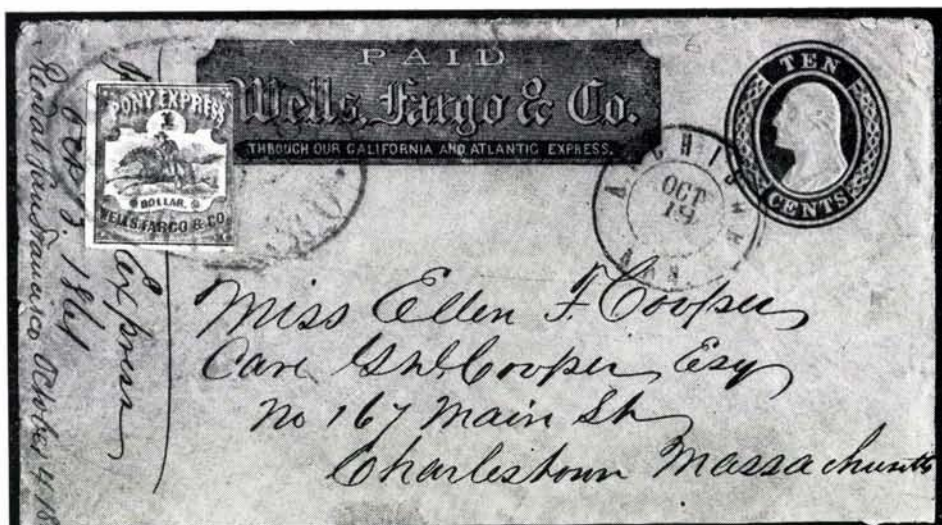 PAID
Wells, Fargo & Co.
THROUGH OUR CALIFORNIA AND ATLANTIC EXPRESS.
TEN
CENTS
PONY EXPRESS
1
DOLLAR.
WELLS, FARGO & CO.
ATCHISON
KAN
OCT
19
Miss Ellen F. Cooper
Care Cooper Esq
No 167 Main St
Charlestown Massachusetts
Express
Oct 3. 1861
San Francisco October 4